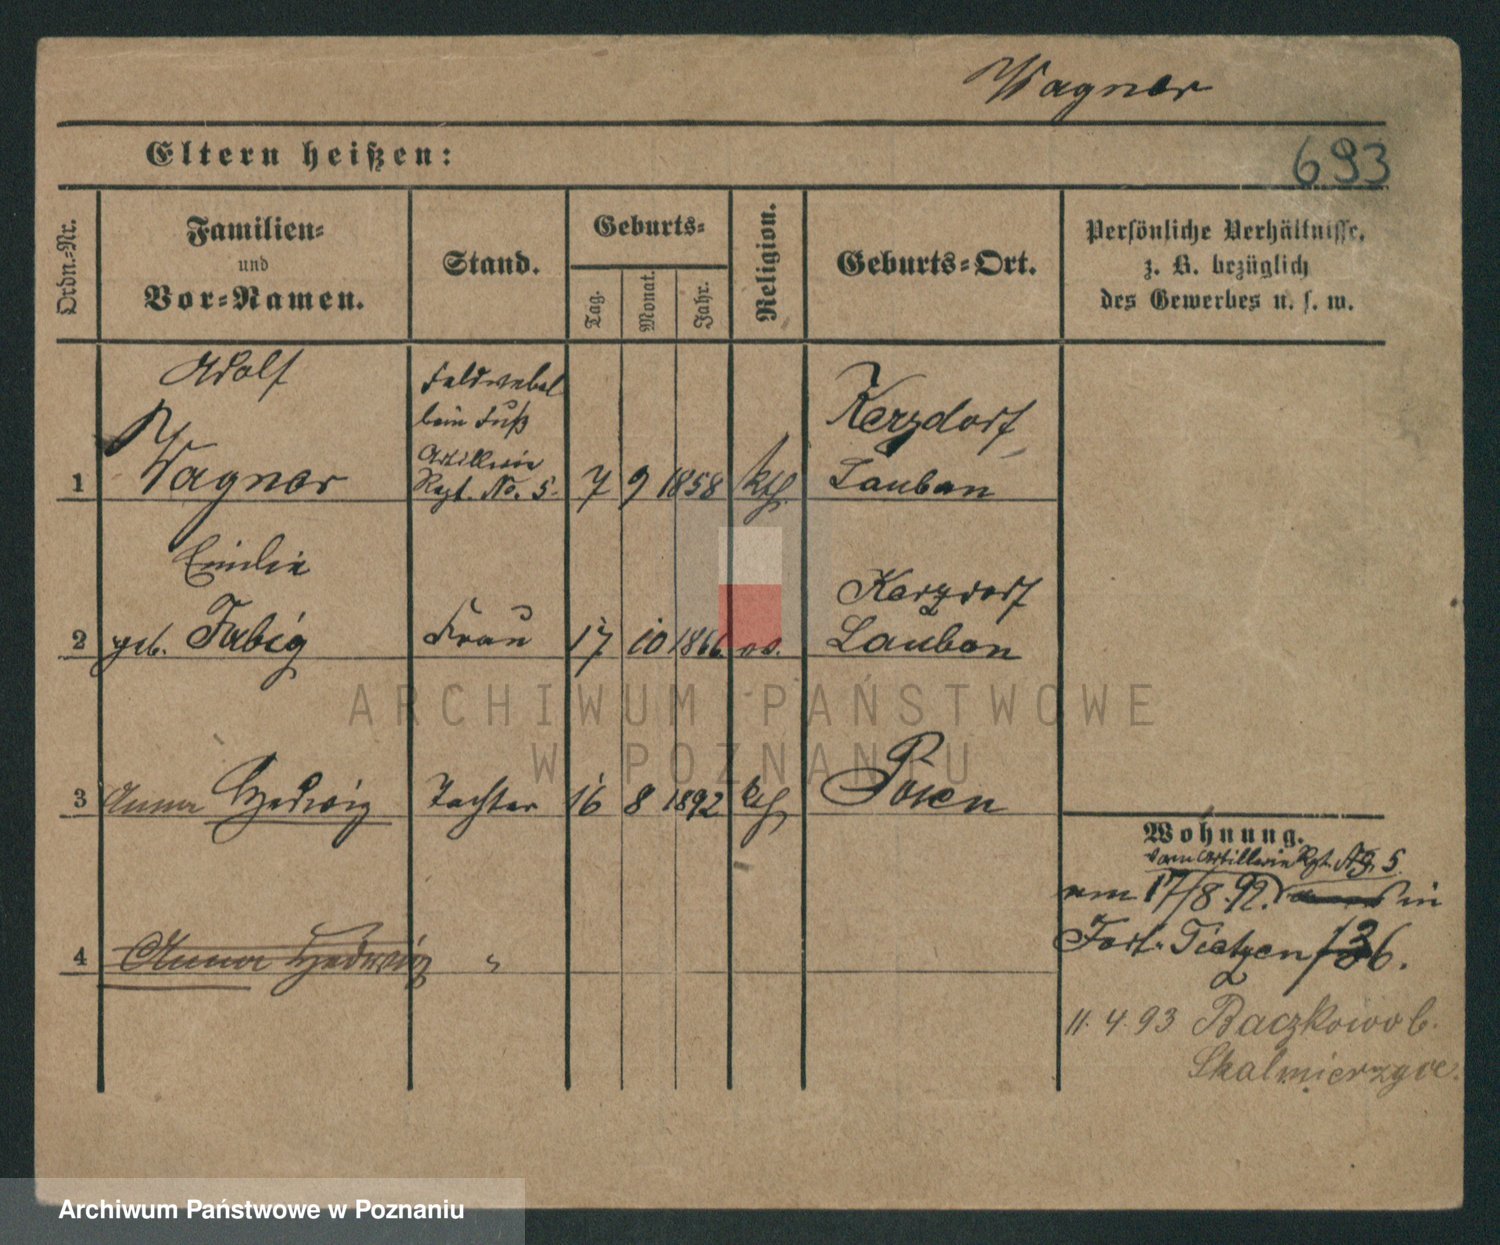 Wagner
Eltern heißen:
693
Ordn.-Nr.
Familien-
und
Vor-Namen.
Stand.
Geburts-
Tag.
Monat.
Jahr.
Religion.
Geburts-Ort.
Persönliche Verhältnisse,
z. B. bezüglich
des Gewerbes u. s. w.
Adolf
Feldwebel
beim Fuß
Artillerie
Kerzdorf
1 Wagner Regt. No. 5. 7 9 1858 kth. Lauban
Emilie
Kerzdorf
2 geb. Fabig Frau 17 10 1866 Lauban
3 Anna Hedwig Tochter 16 8 1892 kth Posen
Wohnung.
vom Artillerie Rgt. No. 5
am 17/8. 92. in
Fort Tietzen
4 Anna Hedwig "
11. 4. 93 Baczkowo b.
Skalmierzyce.
ARCHIWUM PAŃSTWOWE
W POZNANIU
Archiwum Państwowe w Poznaniu